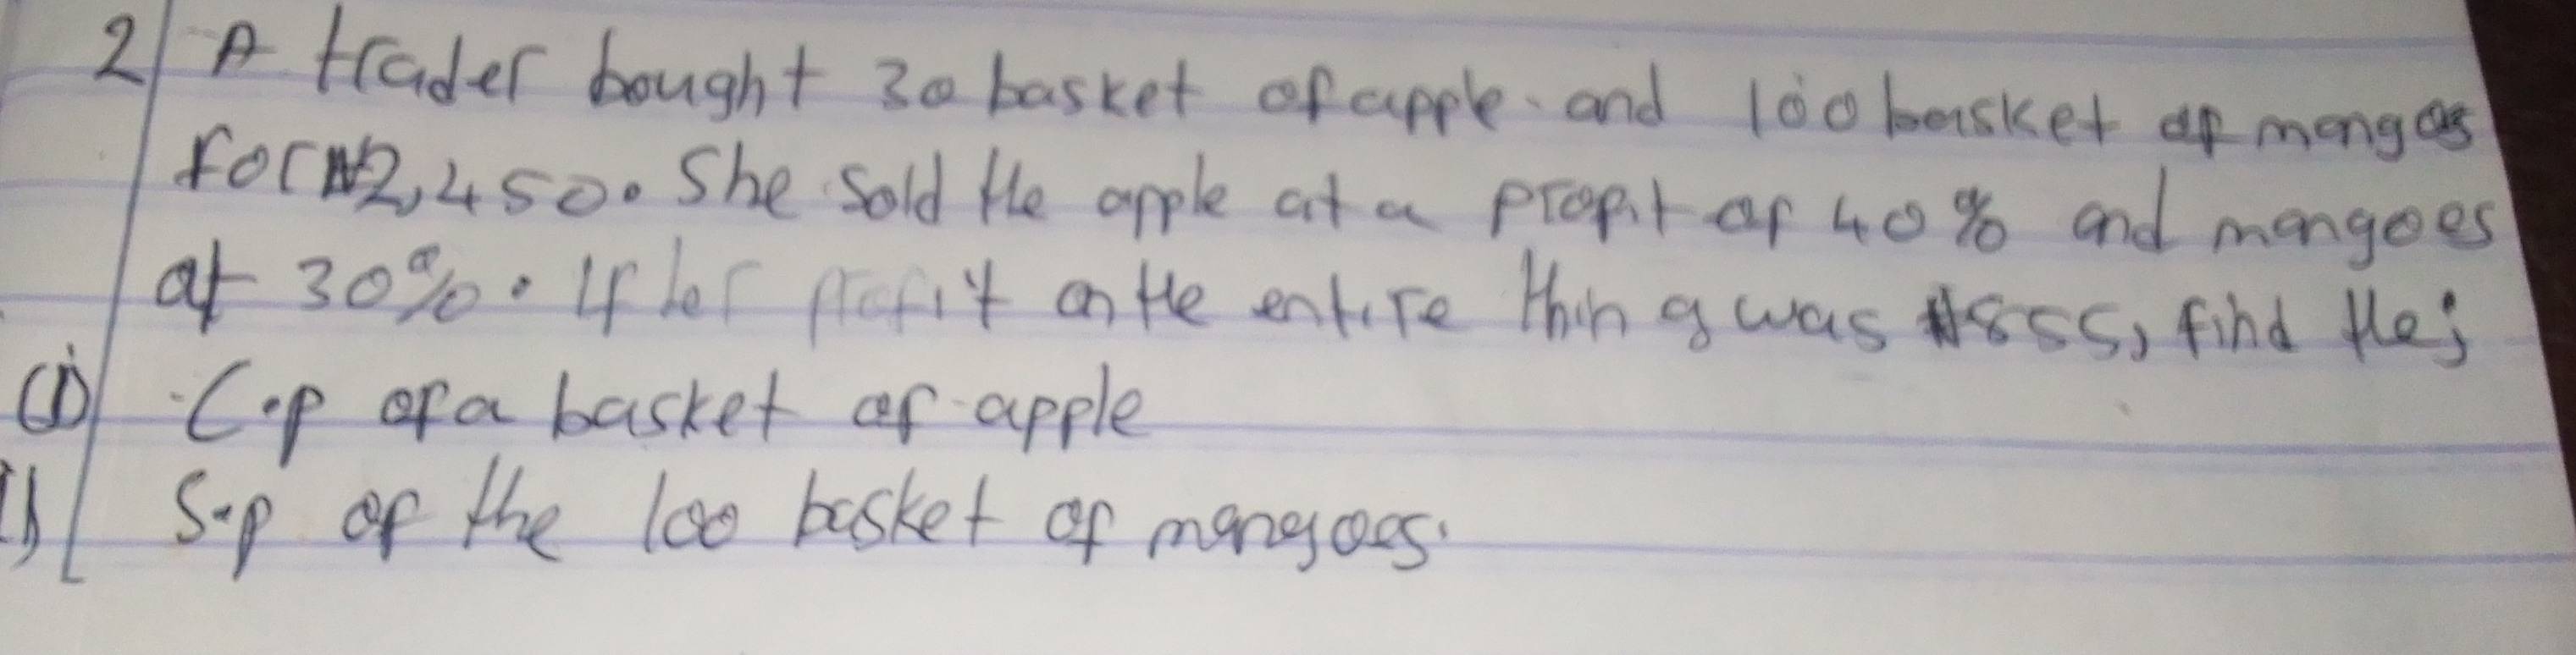 2 A trader bought 30 basket of apple and 100 basket of mangoes
for ₦2,450. She sold the apple at a profit of 40% and mangoes
at 30%. If her profit on the entire thing was ₦855, find the;
(i) C.p of a basket of apple
ii) S.p of the 100 basket of mangoes.